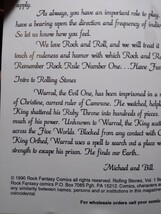 supply.
As always, you have an important role to play
have a bearing upon the direction and frequency of indivi
So let us know how you feel.
We love Rock and Roll, and we will treat it
touch of rudeness and humor with which Rock and Roll
Remember Rock Rule Number One... Have Fun
Intro to Rolling Stones
Warral, the Evil One, has been imprisoned in a
of Christine, current ruler of Camrune. He waited, help
King shattered his Ruby Throne into hundreds of piec
much of his essence. Unfortunately, the Unknown King sca
across the Five Worlds. Blocked from any contact with C
King Orthed, Warral uses a spell to transport himself ou
but a speck can escape his prison. He finds our Earth.
Michael and Bill
© 1990 Rock Fantasy Comics all rights reserved. Rolling Stones, Vol. 1
Rock Fantasy Comics P.O. Box 7085 Pgh, PA 15212. Comics, characters
any similarity between names, persons and or institutions in this magazine
coincidental.
For wholesale orders call your